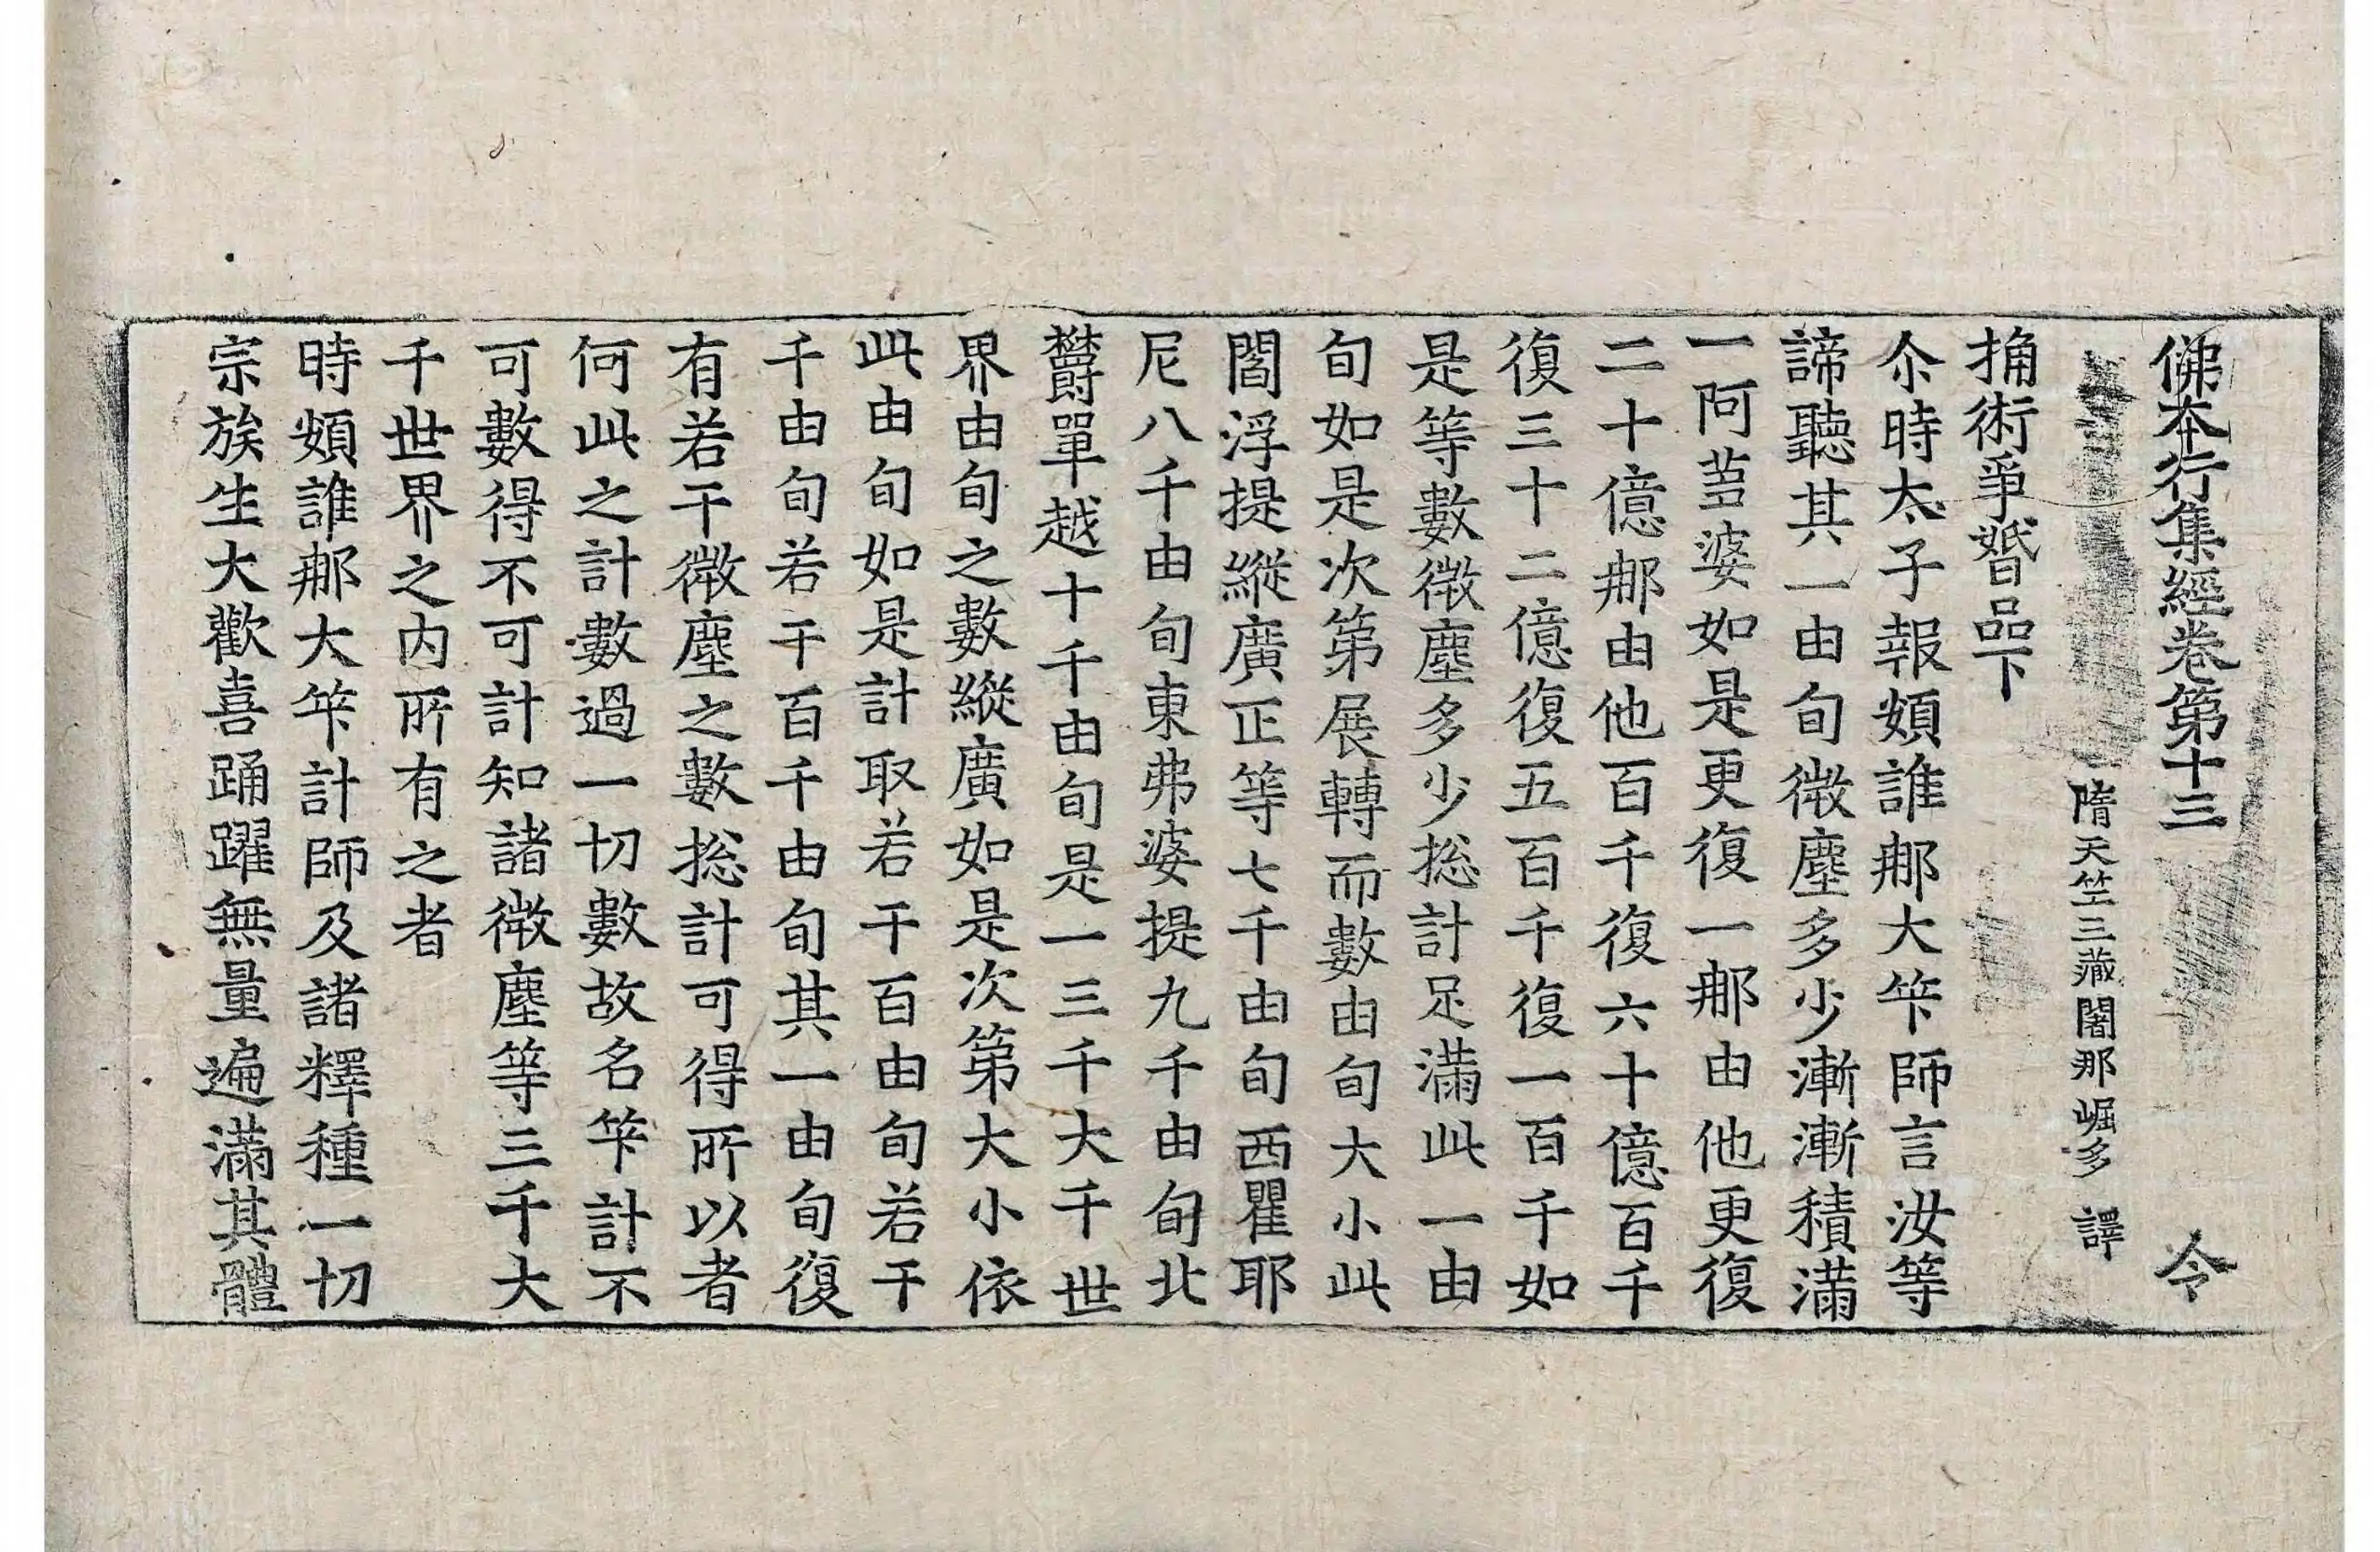 佛本行集經卷第十三 令
隋天竺三藏闍那崛多 譯
捔術爭婚品下
尒時太子報頞誰那大笇師言汝等
諦聽其一由旬微塵多少漸漸積滿
一阿蒭婆如是更復一那由他更復
二十億那由他百千復六十億百千
復三十二億復五百千復一百千如
是等數微塵多少捴計足滿此一由
旬如是次第展轉而數由旬大小此
閻浮提縱廣正等七千由旬西瞿耶
尼八千由旬東弗婆提九千由旬北
欝單越十千由旬是一三千大千世
界由旬之數縱廣如是次第大小依
此由旬如是計取若干百由旬若干
千由旬若干百千由旬其一由旬復
有若干微塵之數捴計可得所以者
何此之計數過一切數故名笇計不
可數得不可計知諸微塵等三千大
千世界之內所有之者
時頞誰那大笇計師及諸釋種一切
宗族生大歡喜踊躍無量遍滿其體